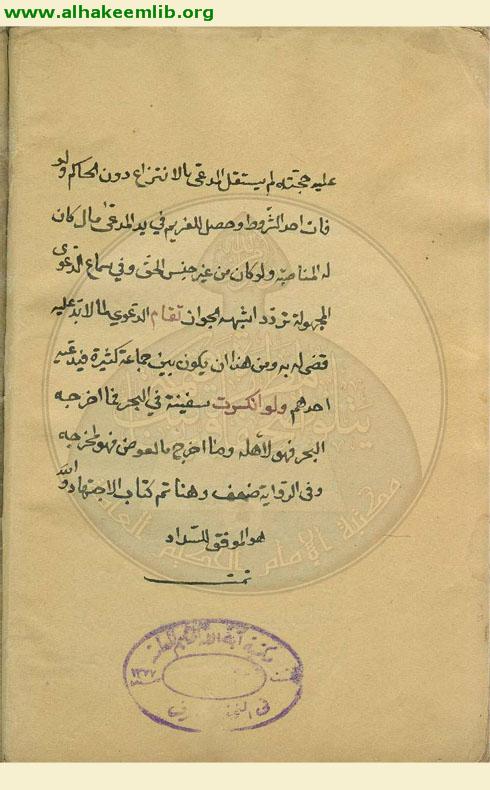 www.alhakeemlib.org
عليه حجته لم يستقل المدعى بالانتزاع دون الحاكم ولو
فات احد الشروط وحصل للغريم فى يد المدعى مال كان
له المقاصة ولو كان من غير جنس الحق وفي سماع الدعوى
المجهولة تردد اشبهه الجواز تقام الدعوي لما لا بد عليه
قضى له به ومن هذا ان يكون بين جماعة كثيرة فيدعيه
احدهم ولو انكسرت سفينة في البحر فما اخرجه
البحر فهو لاهله وما اخرج بالغوص فهو لمخرجه
وفى الرواية ضعف وهنا تم كتاب الاجتهاد والله
هو الموفق للسداد
تمت
مكتبة آية الله الحكيم العامة
فى النجف